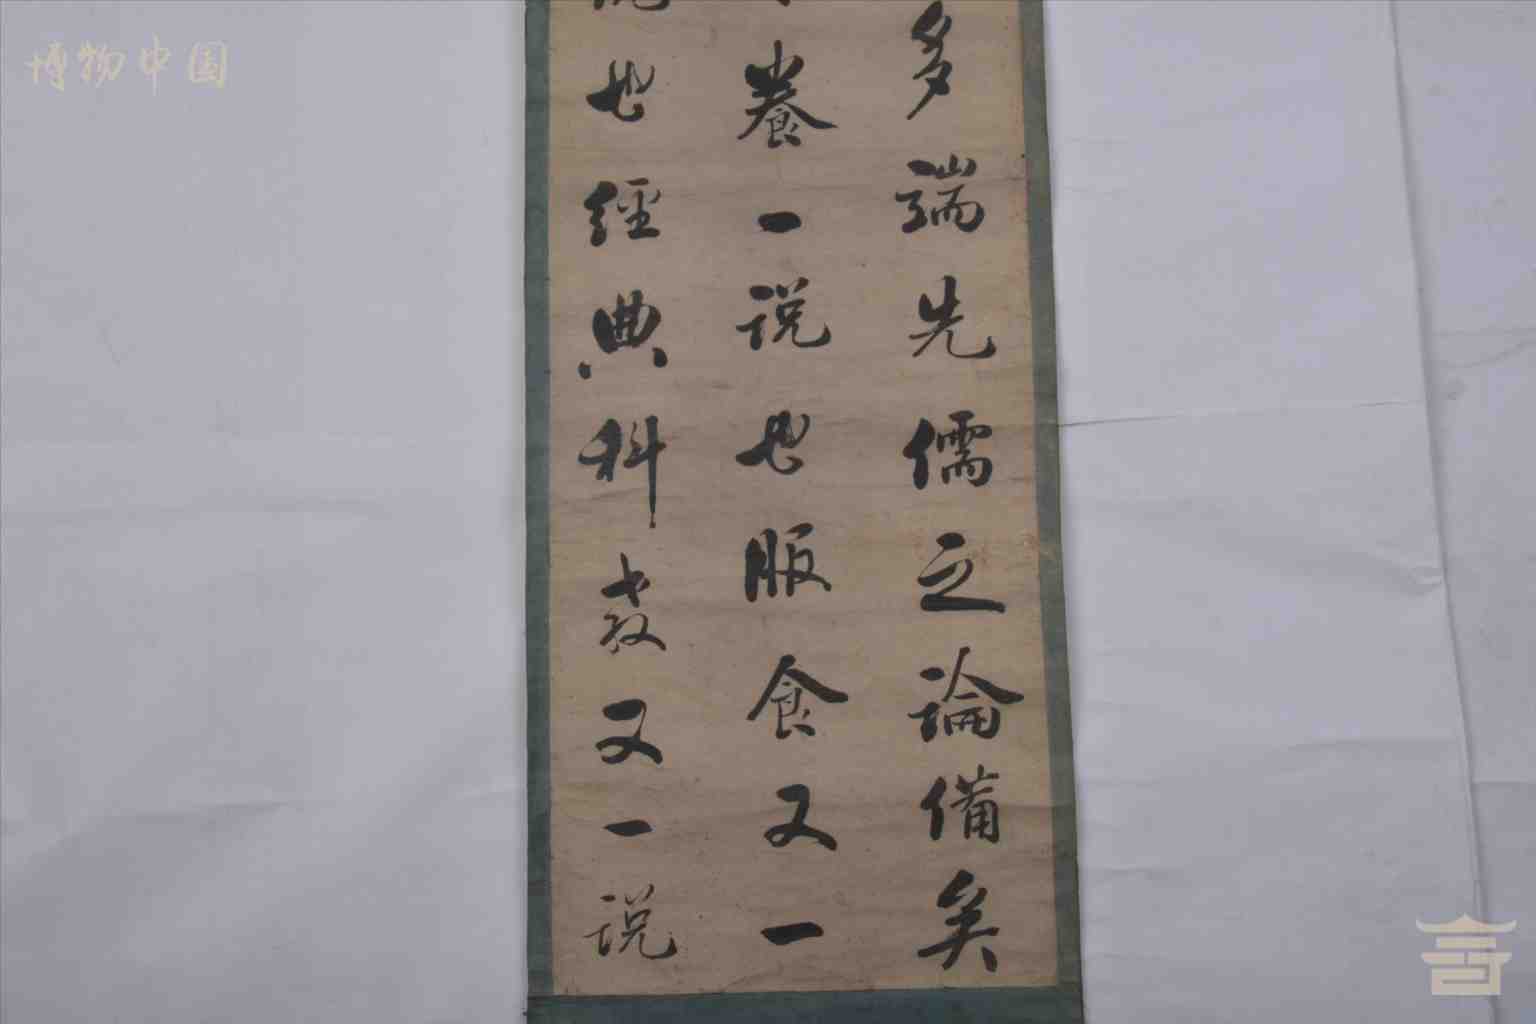 多端先儒之論備矣
養一説也服食又一
也經典科教又一説
博物中国